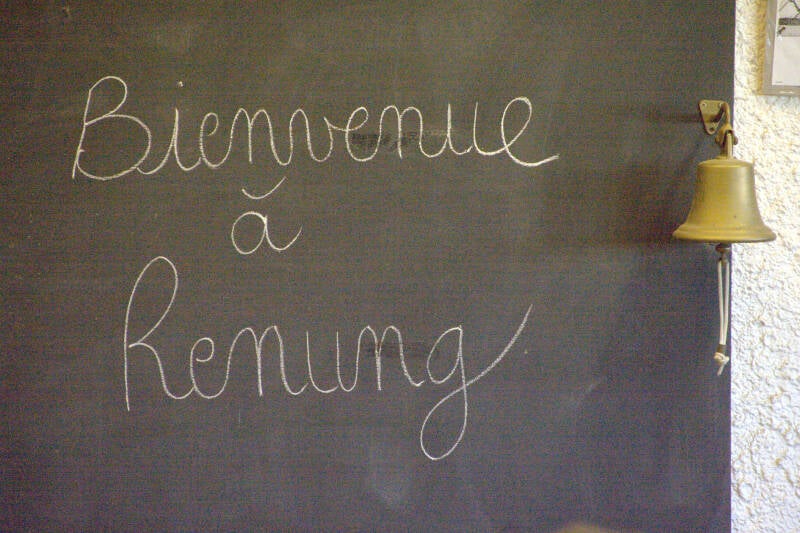 Bienvenue
à
Renung